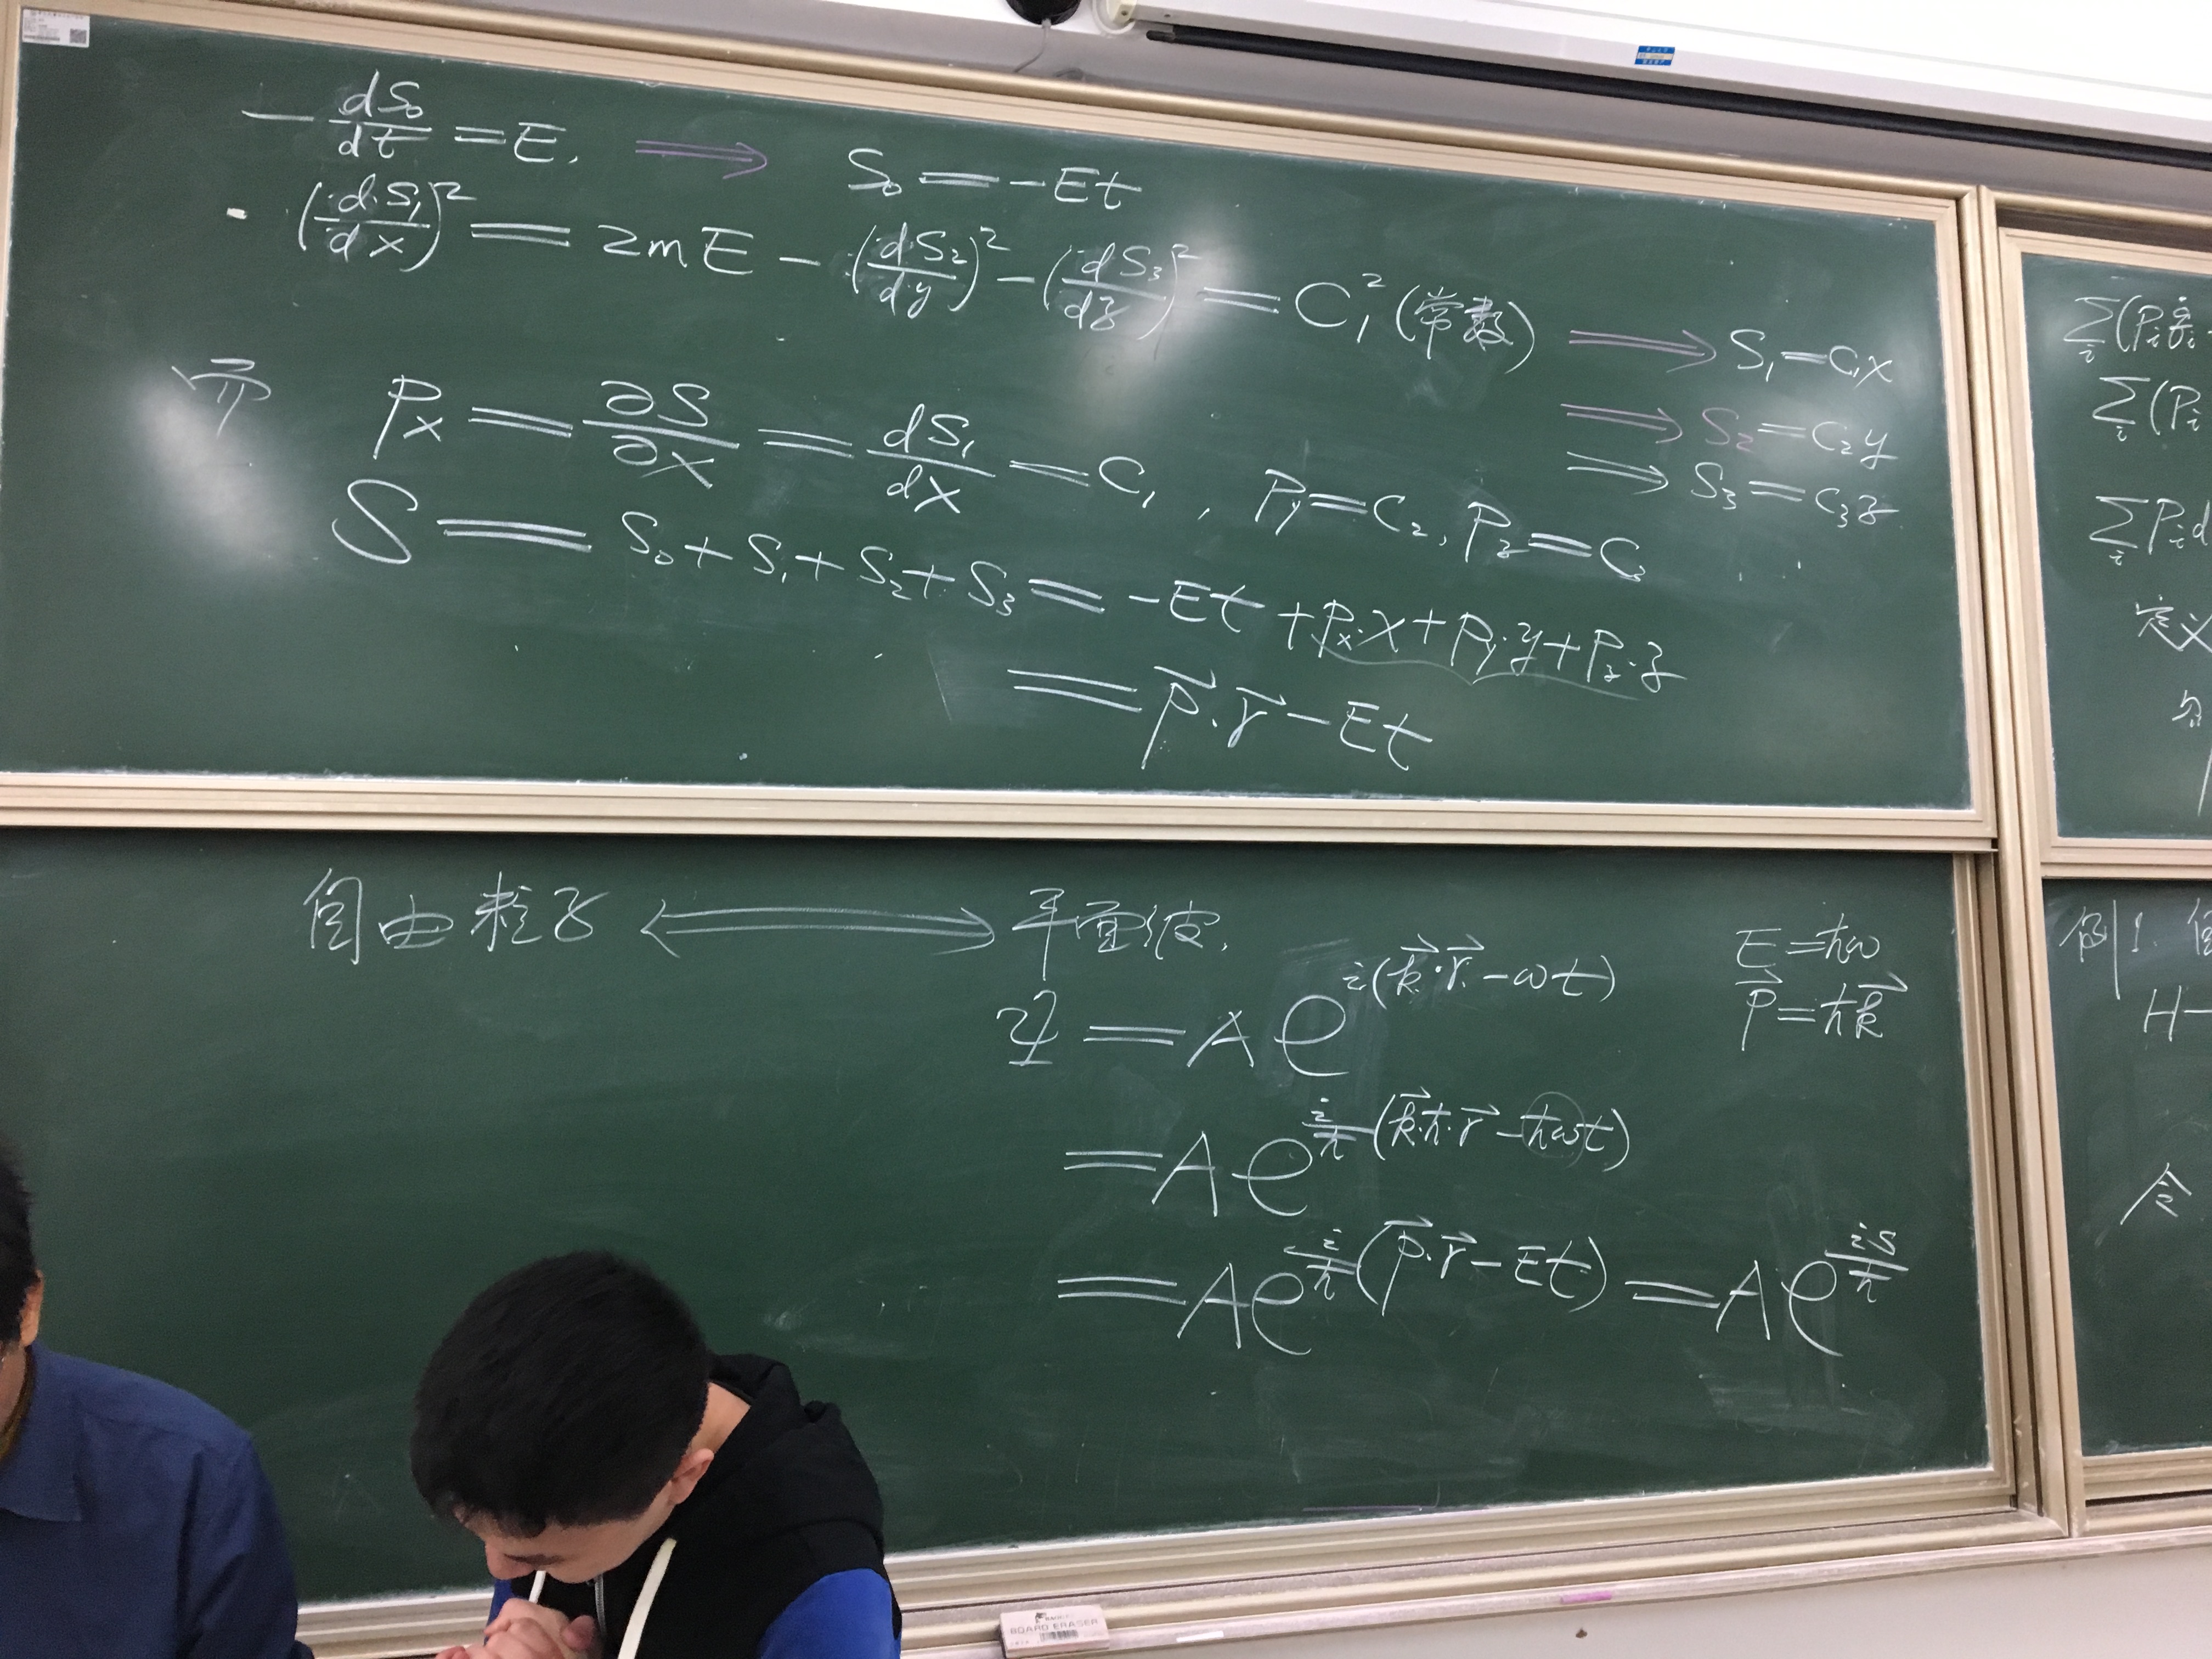 -dS₀/dt = E, ⟹ S₀ = -Et
(dS₁/dx)² = 2mE - (dS₂/dy)² - (dS₃/dz)² = C₁² (常数) ⟹ S₁ = C₁x
⟹ S₂ = C₂y
⟹ S₃ = C₃z
而 Pₓ = ∂S/∂x = dS₁/dx = C₁, Py = C₂, Pz = C₃
S = S₀ + S₁ + S₂ + S₃ = -Et + Px·x + Py·y + Pz·z
= p⃗·r⃗ - Et
自由粒子 ⟺ 平面波.
E = ħω
P⃗ = ħk⃗
Ψ = A e^{i(k⃗·r⃗ - ωt)}
= A e^{i/ħ (k⃗·ħ·r⃗ - ħωt)}
= A e^{i/ħ (p⃗·r⃗ - Et)} = A e^{iS/ħ}
Σᵢ(Pᵢq̇ᵢ
Σᵢ(Pᵢ
ΣᵢPᵢd
定义
例1.
H-
令
BOARD ERASER